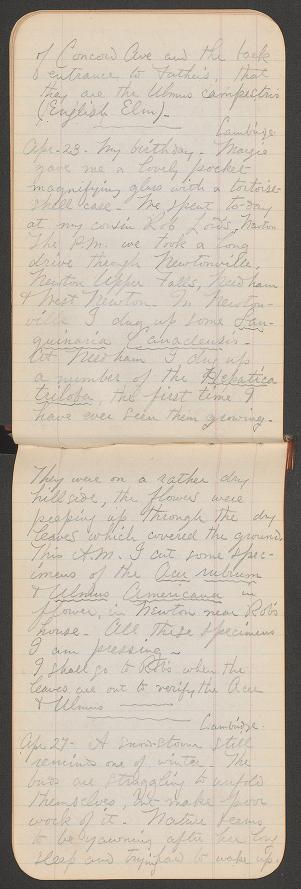 of Concord Ave and the back
entrance to Father's, that
they are the Ulmus campestris
(English Elm).
Cambridge
Apr. 23. My birthday. Margie
gave me a lovely pocket
magnifying glass with a tortoise-
shell case. We spent to-day
at my cousin Rob Lord's, Newton
The P.M. we took a long
drive through Newtonville,
Newton Upper Falls, Needham
& West Newton. In Newton-
ville I dug up some San-
guinaria Canadensis.
At Needham I dug up
a number of the Hepatica
triloba, the first time I
have ever seen them growing.
They were on a rather dry
hillside, the flowers were
peeping up through the dry
leaves which covered the ground.
This A.M. I cut some spec-
imens of the Acer rubrum
& Ulmus Americana in
flower, in Newton near Rob's
house. All these specimens
I am pressing.
I shall go to Rob's when the
leaves are out to verify the Acer
& Ulmus
Cambridge.
Apr. 27. A snowstorm still
reminds one of winter. The
buds are struggling to unfold
themselves, but make poor
work of it. Nature seems
to be yawning after her long
sleep and trying hard to wake up.